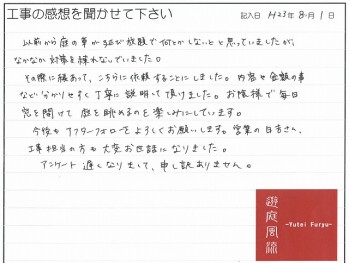 工事の感想を聞かせて下さい
記入日 H23年 8月 1日
以前から庭の草が延び放題で何とかしないとと思っていましたが、
なかなか対策を練れないでいました。
その際に縁あって、こちらに依頼することにしました。内容や金額の事
など分かりせすく丁寧に説明して頂けました。お陰様で毎日
窓を開けて庭を眺めるのを楽しみにしています。
今後もアフターフォローをよろしくお願いします。営業の さん、
工事担当の方も大変お世話になりました。
アンケート遅くなりまして、申し訳ありません。
遊庭風流
-Yutei Furyu-